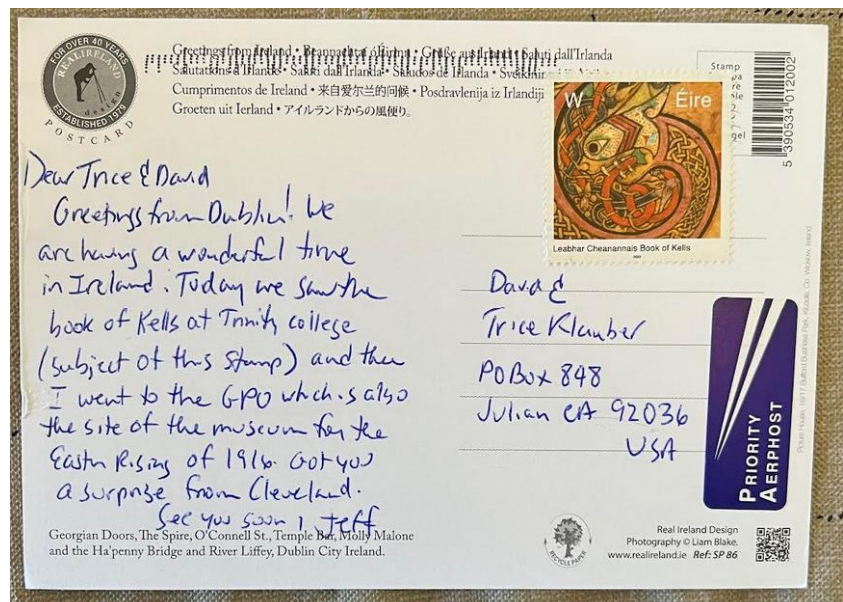 FOR OVER 40 YEARS
REALIRELAND
design
ESTABLISHED 1979
POSTCARD
Greetings from Ireland • Beannachtaí ó Éirinn • Grüße aus Irland • Saluti dall'Irlanda
Salutations d'Irlande • Saluti dall'Irlanda • Saludos de Irlanda •
Cumprimentos de Ireland • 来自爱尔兰的问候 • Posdravlenija iz Irlandiji
Groeten uit Ierland • アイルランドからの風便り。
Stamp
gel
5 390534 012002
W Éire
Leabhar Cheanannais Book of Kells
Dear Trice & David
Greetings from Dublin! We
are having a wonderful time
in Ireland. Today we saw the
book of Kells at Trinity college
(subject of this stamp) and then
I went to the GPO which is also
the site of the museum for the
Eastern Rising of 1916. Got you
a surprise from Cleveland.
See you soon, Jeff
David &
Trice Klauber
PO Box 848
Julian CA 92036
USA
PRIORITY
AERPHOST
Georgian Doors, The Spire, O'Connell St., Temple Bar, Molly Malone
and the Ha'penny Bridge and River Liffey, Dublin City Ireland.
RECYCLE PAPER
Real Ireland Design
Photography © Liam Blake.
www.realireland.ie Ref: SP 86